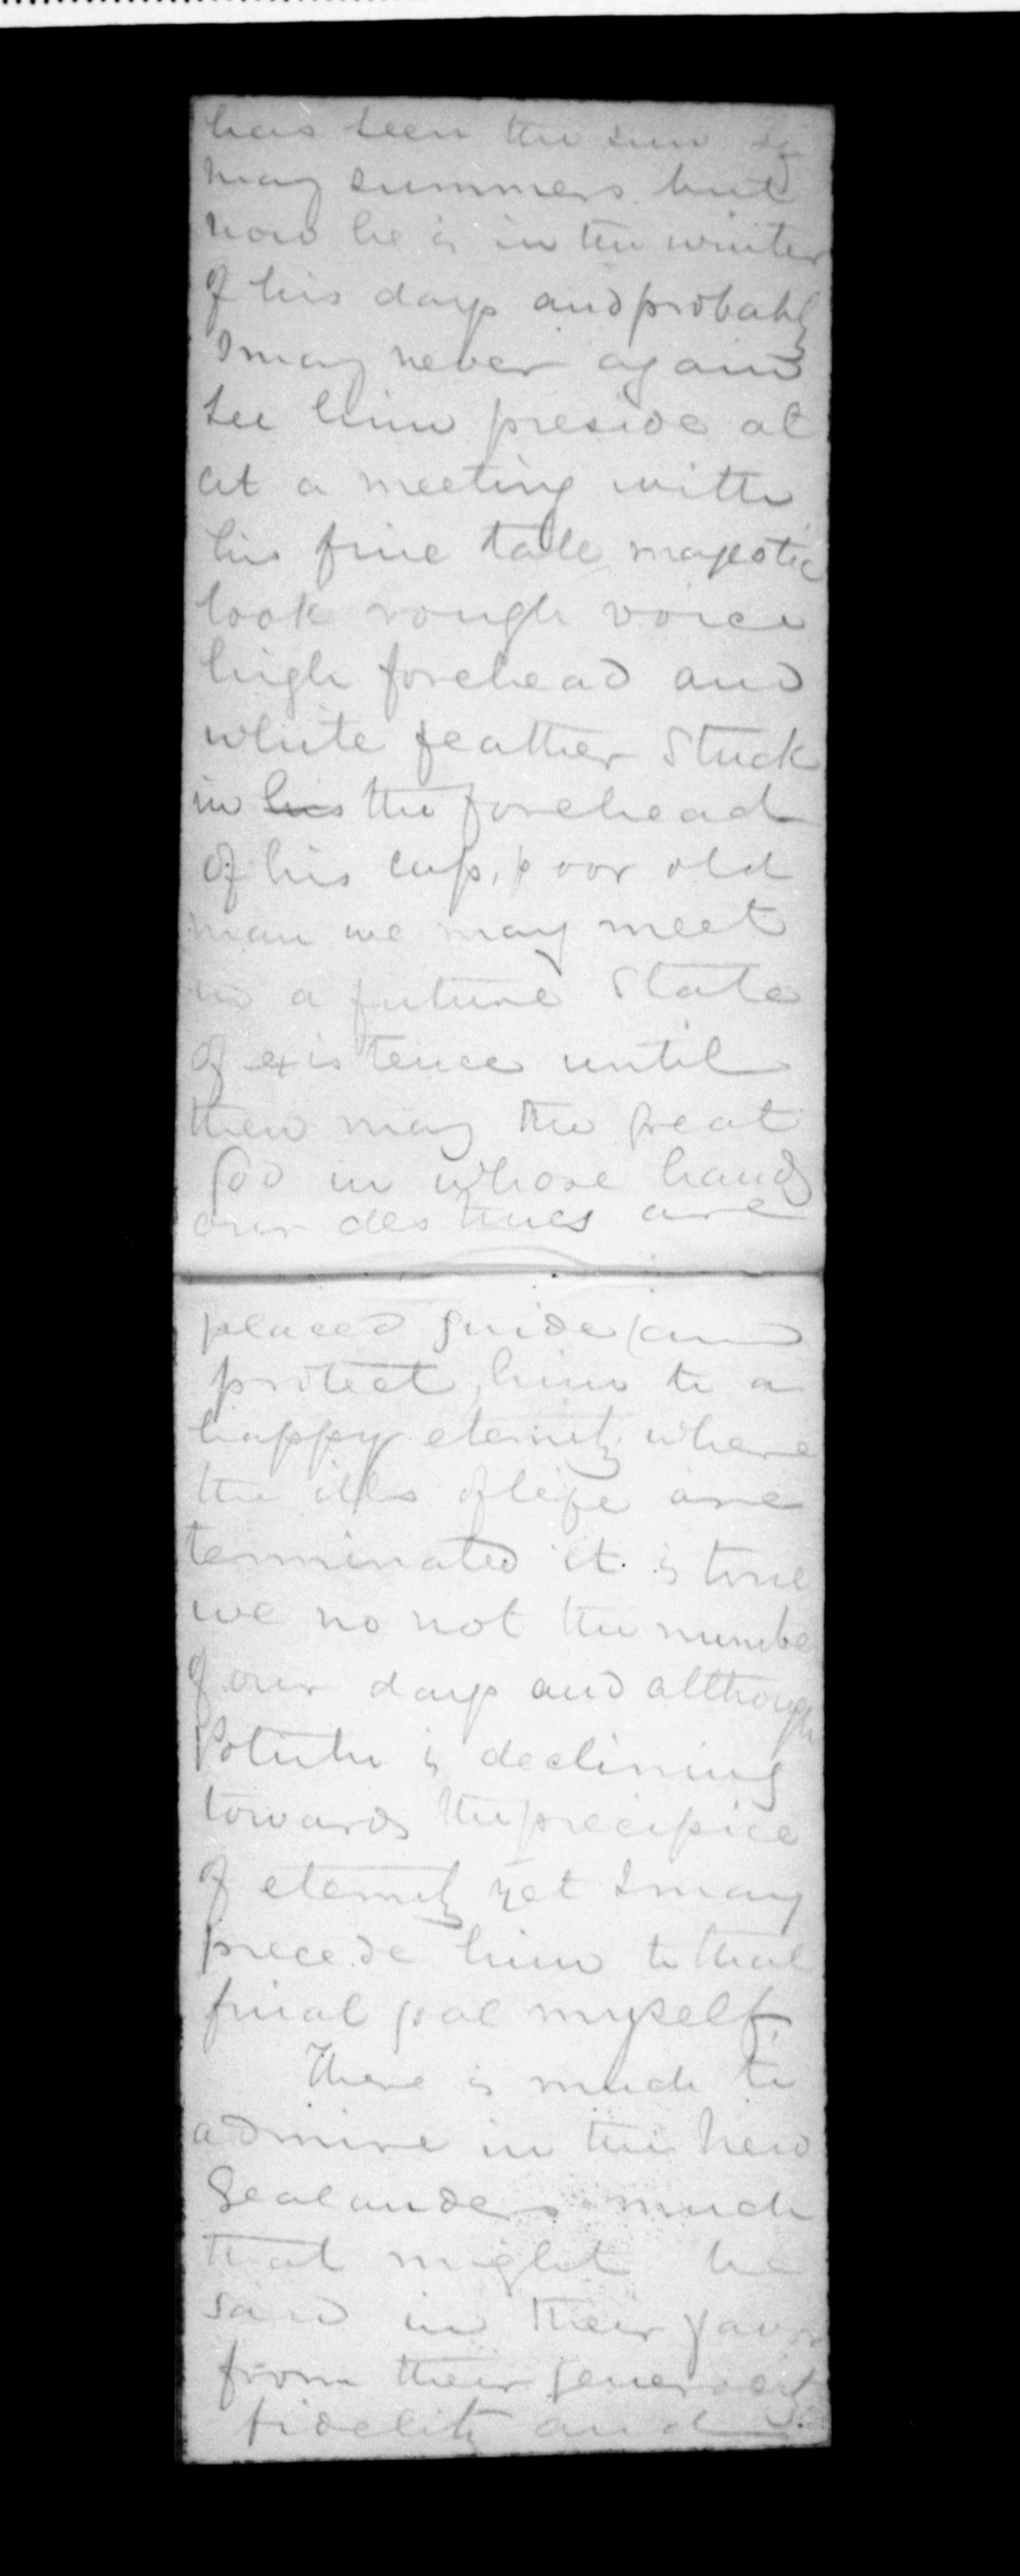 has seen the sun of
may summers but
now he is in the winter
of his days and probably
I may never again
see him preside at
at a meeting with
his fine tall majestic
look rough voice
high forehead and
white feather stuck
in his the forehead
of his cap, poor old
man we may meet
in a future state
of existence until
then may the great
God in whose hands
our destines are
placed guide and
protect him to a
happy eternity where
the ills of life are
terminated it is true
we no not the number
of our days and although
is declining
towards the precipice
of eternity yet I may
precede him to that
final goal myself.
There is much to
admire in the New
Zealanders much
that might be
said in their favor
from their generosity
fidelity and